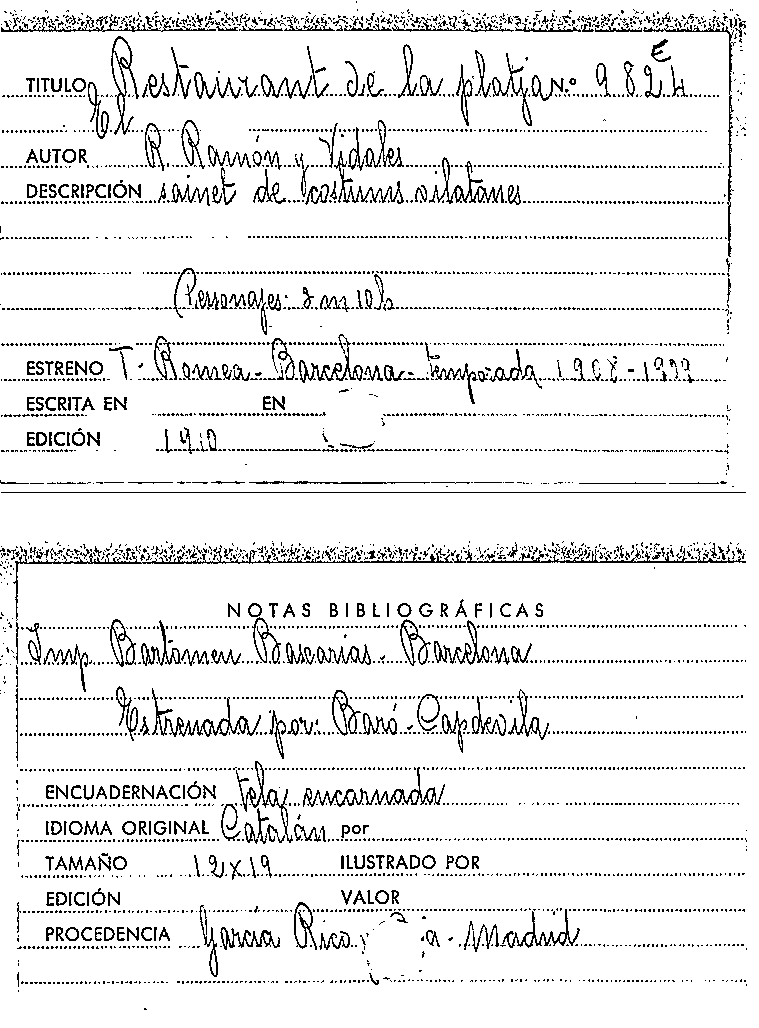 TITULO El Restaurant de la platja N.º 982 E
AUTOR R. Ramón y Vidales
DESCRIPCIÓN sainet de costums vilatanes
Personajes: 2 m 10 h
ESTRENO T. Romea - Barcelona - temporada 1908 -
ESCRITA EN EN
EDICIÓN 1910
NOTAS BIBLIOGRÁFICAS
Imp Bartomeu Bascarias - Barcelona
Estrenada por: Baró - Capdevila
ENCUADERNACIÓN tela encarnada
IDIOMA ORIGINAL Catalán por
TAMAÑO 12x19 ILUSTRADO POR
EDICIÓN VALOR
PROCEDENCIA García Rico - Madrid